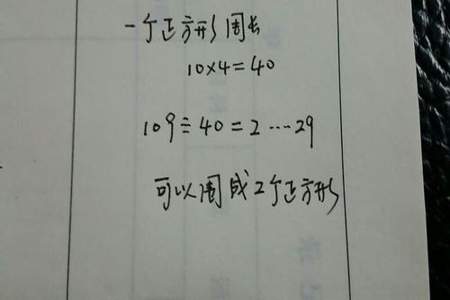 一个正方形周长
10×4=40
109÷40=2…29
可以围成2个正方形